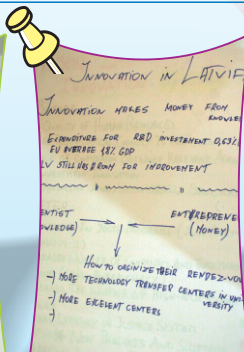 INNOVATION IN LATVI
INNOVATION MAKES MONEY FROM
KNOWLE
EXPENDITURE FOR R&D INVESTEMENT 0,63%
EU AVERAGE 1,8% GDP
LV STILL HAS ROOM FOR IMPROVEMENT
ENTIST ENTREPRENE
OWLEDGE) (MONEY)
HOW TO ORGINIZE THEIR RENDEZ-VOU
-) MORE TECHNOLOGY TRANSFER CENTERS IN UNI
VERSITY
-) MORE EXCELENT CENTERS
-)